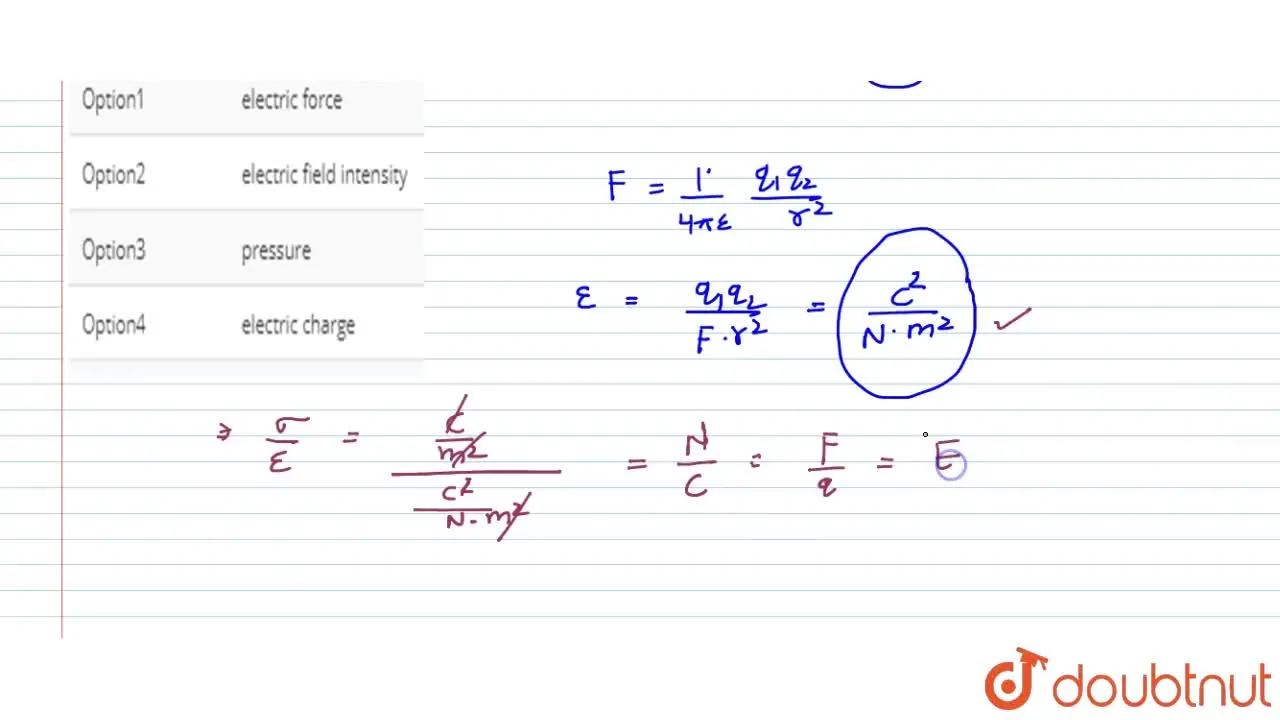 Option1 electric force
Option2 electric field intensity
Option3 pressure
Option4 electric charge
F = 1/4πε q1q2/r²
ε = q1q2/F·r² = C²/N·m²
⇒ σ/ε = (C/m²)/(C²/N·m²) = N/C = F/q = E
doubtnut